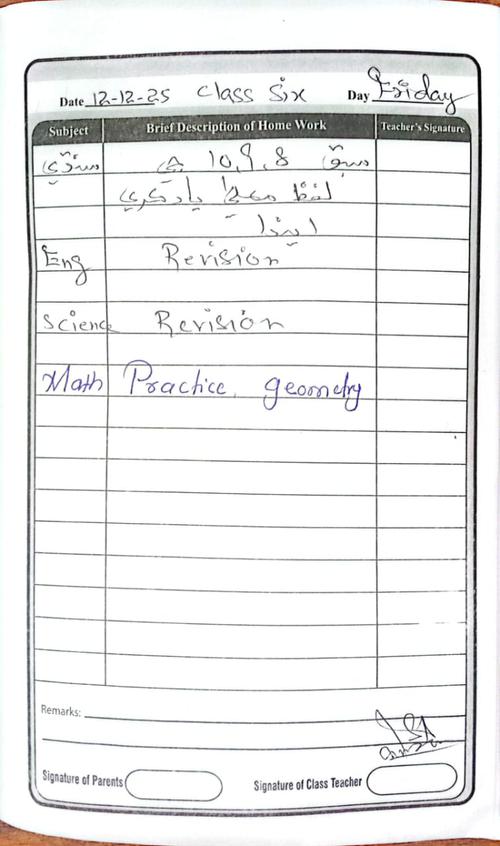 Date 12-12-25 Class Six Day Friday
Subject Brief Description of Home Work Teacher's Signature
سنڌي سبق 8, 9, 10 جي
لفظ معنيٰ ياد ڪري
ايندا
Eng Revision
Science Revision
Math Practice geometry
Remarks:
Signature of Parents Signature of Class Teacher